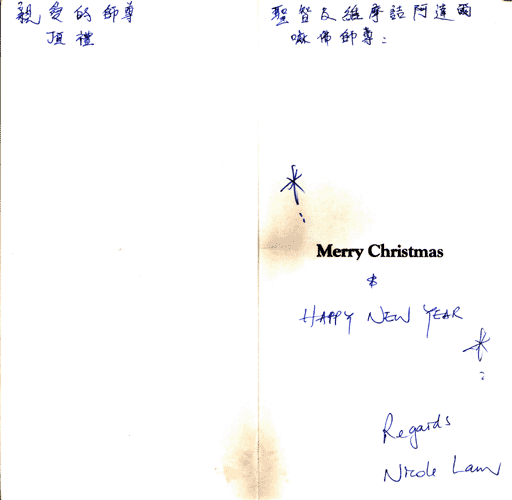 親愛的師尊
頂禮
聖智友維摩詰阿達爾
嘛佛師尊：
Merry Christmas
&
HAPPY NEW YEAR
Regards
Nicole Lam